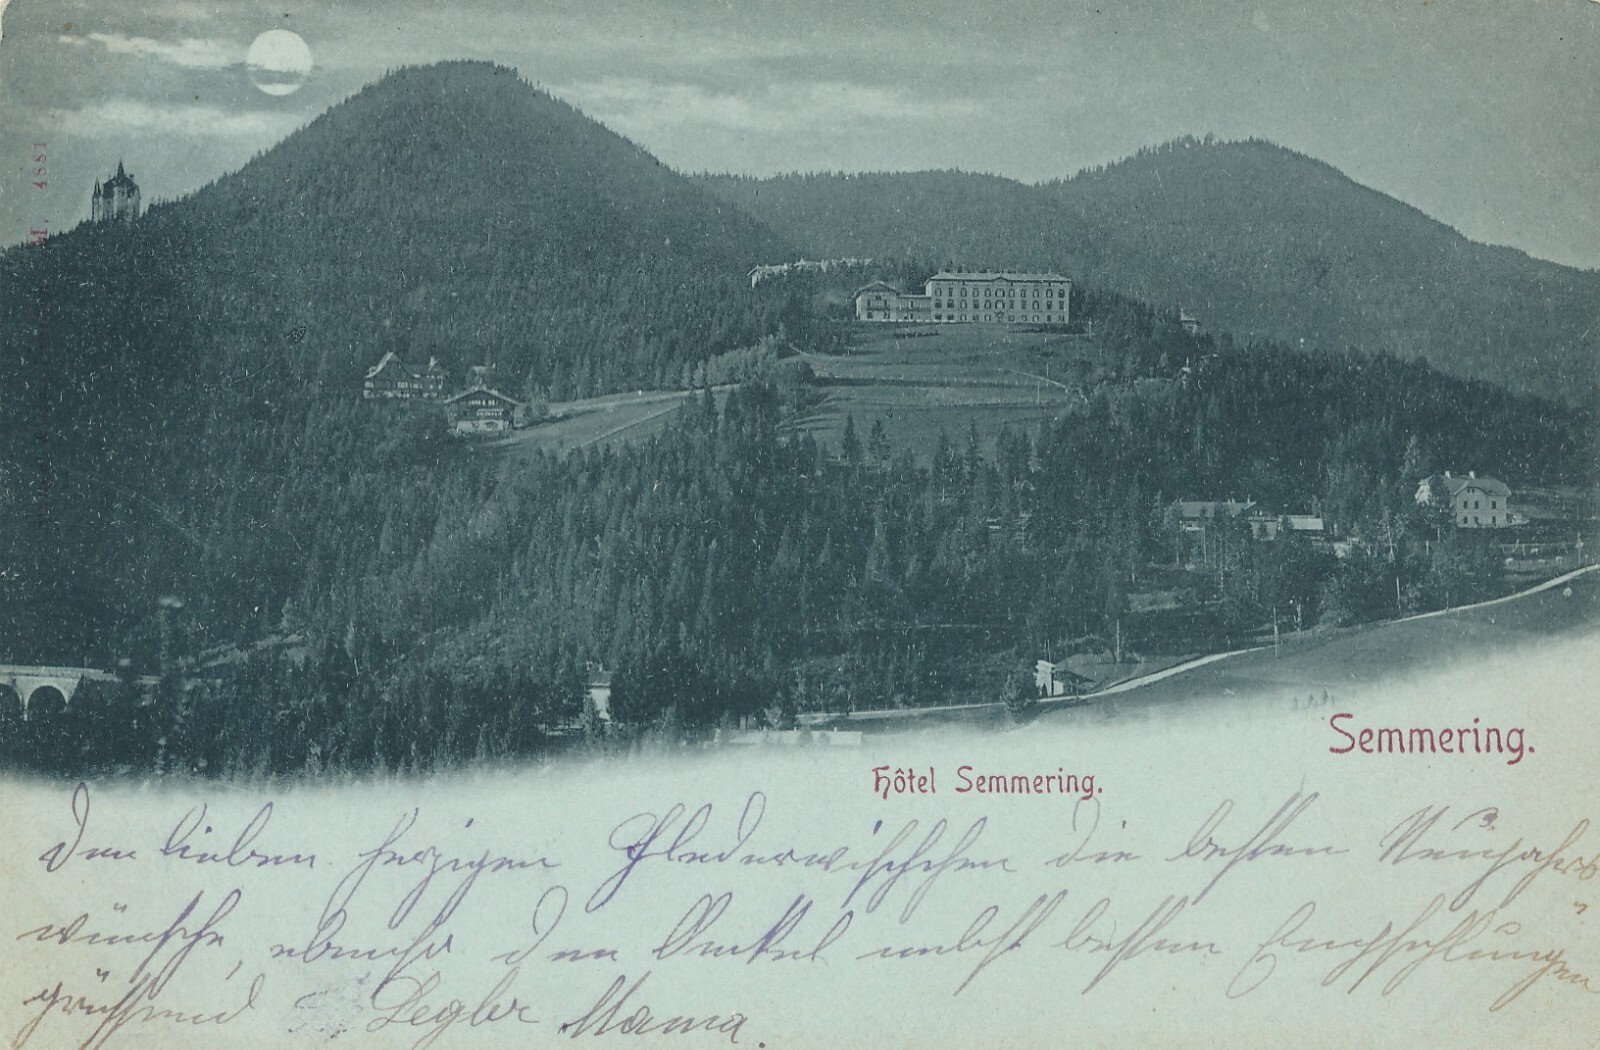 M. 4881
Semmering.
Hôtel Semmering.
Den lieben herzigen Flederwischchen die besten Neujahrs
wünsche, ebenso dem Onkel nebst besten Empfehlungen
grüssend Mama.